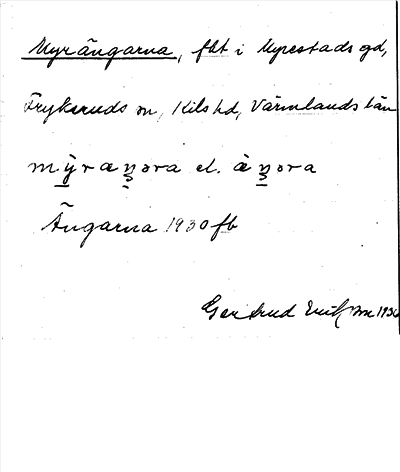 Myrängarna, fht i Myrestads gd,
Frykeruds sn, Kils hd, Värmlands län
mỳ̱ræŋ̱ɔra el. æ̀ŋ̱ɔra
Ängarna 1930 fb
Gertrud 1936